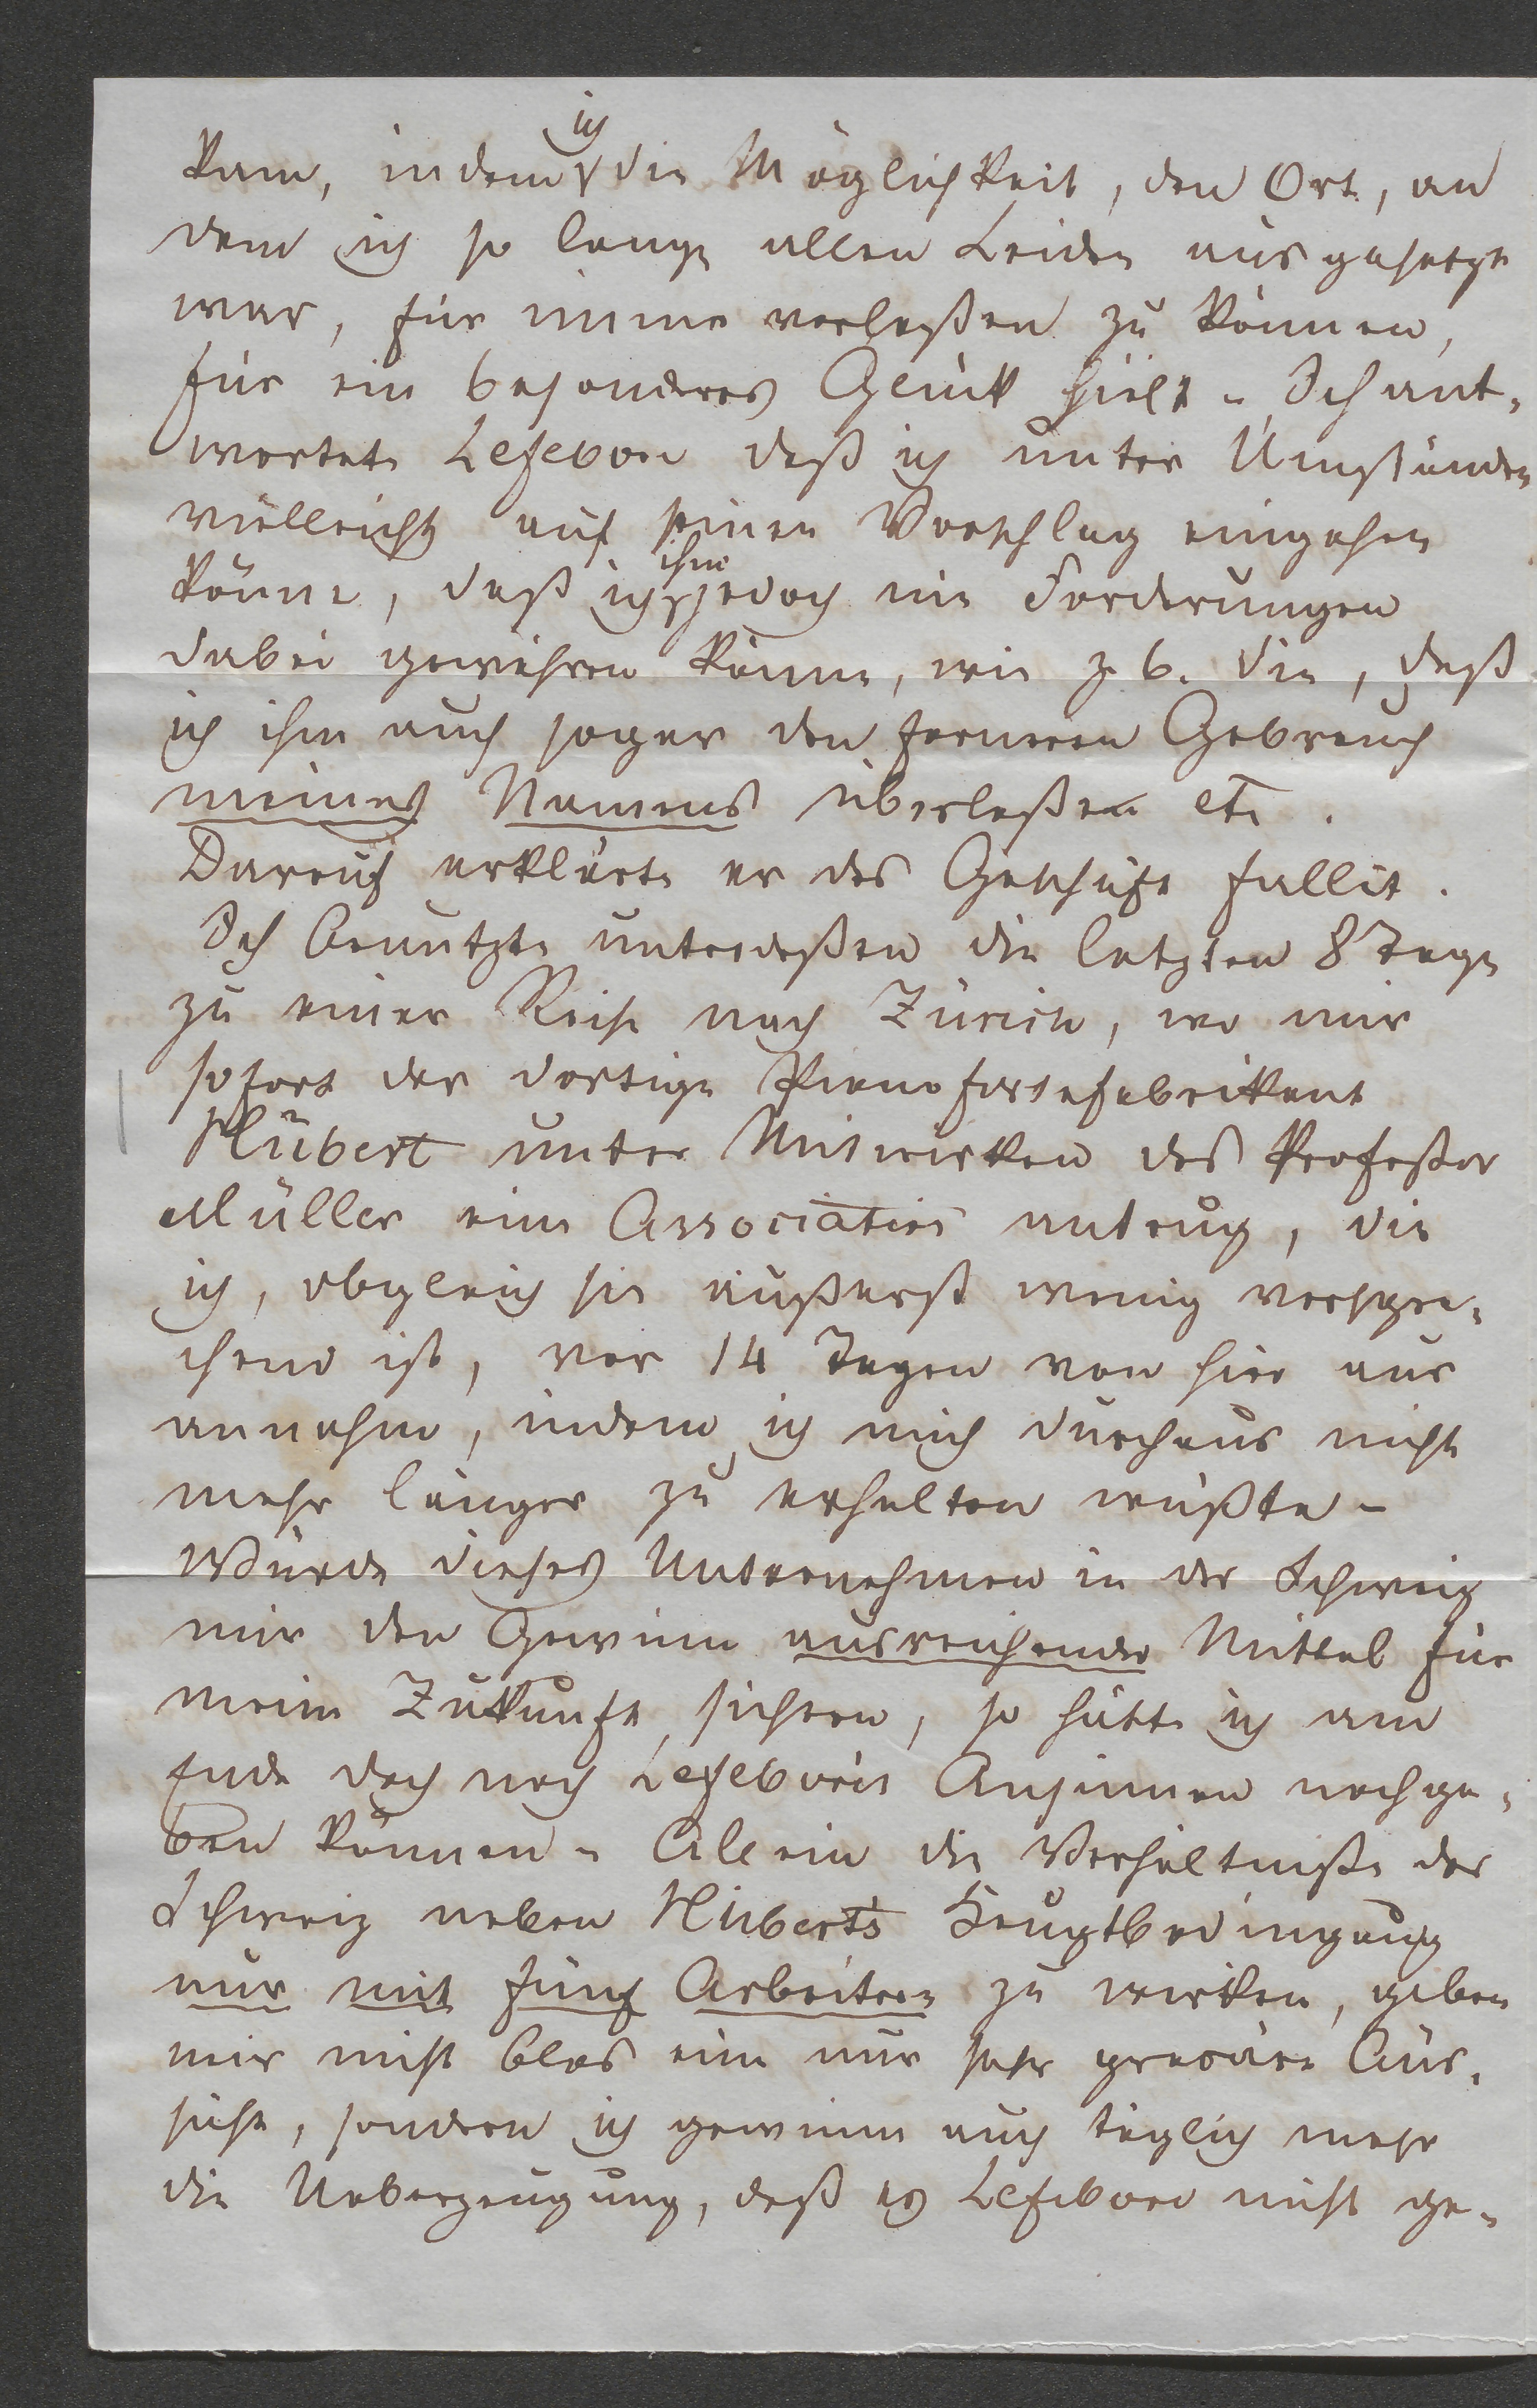 kam, indem ich die Möglichkeit, den Ort, an
dem ich so lange allen Leiden ausgesetzt
war, für immer verlaßen zu können,
für ein besonderes Glück hielt - Ich ant-
wortete Lefebvre daß ich unter Umständen
vielleicht auf seinen Vorschlag eingehen
könne, daß ich ihm jedoch nie Forderungen
dabei gewähren könne, wie z. b. die, daß
ich ihm auch sogar den ferneren Gebrauch
meines Namens überlaßen etc.
Darauf erklärte er das Geschäft fallit.
Ich benutzte unterdeßen die letzten 8 Tage
zu einer Reise nach Zürich, wo mir
sofort der dortige Pianofortefabrikant
Hübert unter Mitwirken des Profeßor
Müller eine Association antrug, die
ich, obgleich sie äußerst wenig verspre-
chend ist, vor 14 Tagen von hier aus
annahm, indem ich mich durchaus nicht
mehr länger zu erhalten wußte -
Würde dieses Unternehmen in der Schweiz
mir den Gewinn ausreichender Mittel für
meine Zukunft sichern, so hätte ich am
Ende doch noch Lefebvres Ansinnen nachge-
ben können - Allein die Verhältniße der
Schweiz neben Hüberts Hauptbedingung
nur mit fünf Arbeitern zu wirken, geben
mir nicht blos eine nur sehr precäre Aus-
sicht, sondern ich gewinne auch täglich mehr
die Ueberzeugung, daß es Lefebvre nicht ge-